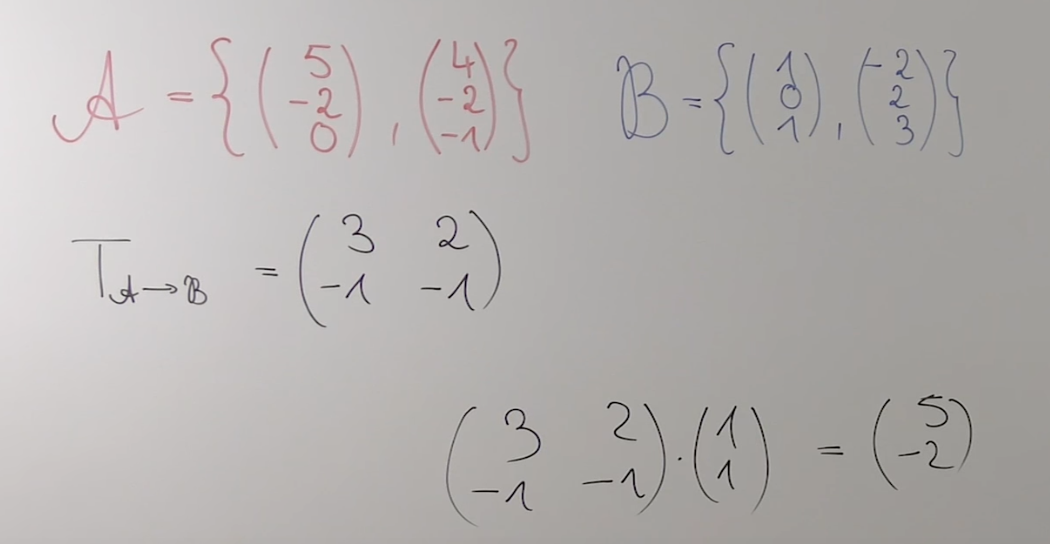 𝒜 = {(5 -2 0), (4 -2 -1)} ℬ = {(1 0 1), (-2 2 3)}
T𝒜→ℬ = (3 2
-1 -1)
(3 2
-1 -1) · (1 1) = (5 -2)